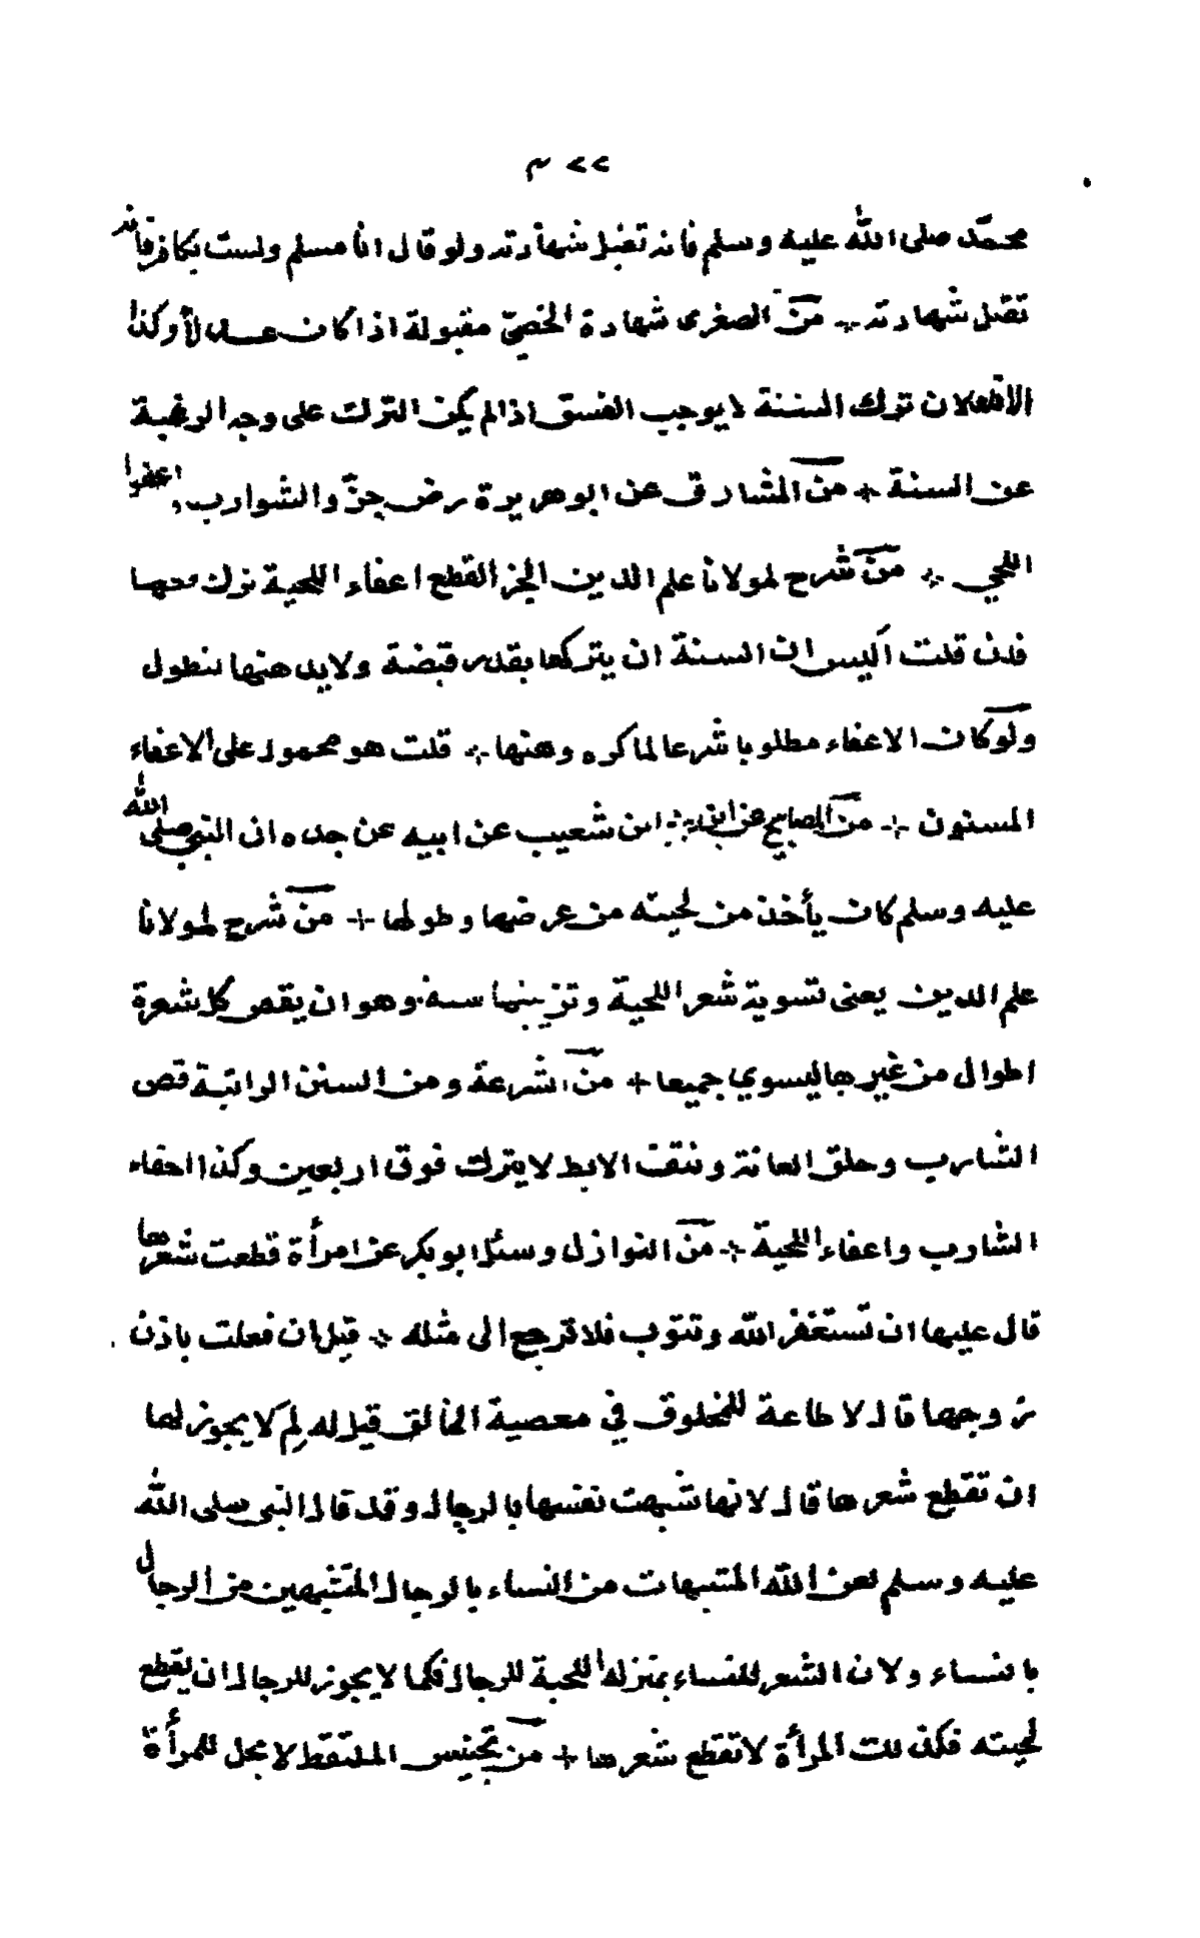 ٢٢٣
محمّد صلى الله عليه وسلم فانه تقبل شهادته ولو قال انا مسلم ولست بكافر فانه
تقبل شهادته من الصغرى شهادة الخصيّ مقبولة اذا كان عدلا وكذا
الاقطع لان ترك السنة لا يوجب الفسق اذا لم يكن الترك على وجه الرغبة
عن السنة + من المشارق عن ابو هريرة رض جزّوا الشوارب اعفوا
اللحي من شرح لمولانا علم الدين الجز القطع اعفاء اللحية ترك
قلت اليس ان السنة ان يتركها بقدر قبضة ولا يدعنها تطول
ولو كان الاعفاء مطلوبا شرعا لما كره وعنها قلت هو محمول على الاعفاء
المسنون + من المصابيح عن ابن شعيب عن ابيه عن جده ان النبي صلى الله
عليه وسلم كان يأخذ من لحيته من عرضها وطولها + من شرح لمولانا
علم الدين يعنى تسوية شعر اللحية وتزيينها سنة وهو ان يقص كل شعرة
اطوال من غيرها ليسوي جميعا + من شرعة ومن السنن الراتبة قص
الشارب وحلق العانة ونتف الابط لا يترك فوق اربعين وكذا احفاء
الشارب واعفاء اللحية من النوازل وسئل ابو بكر عن امرأة قطعت شعرها
قال عليها ان تستغفر الله وتتوب فلا ترجع الى مثله قيل ان فعلت باذن
زوجها قال لا طاعة للمخلوق في معصية الخالق قيل له لِم لا يجوز لها
ان تقطع شعرها قال لانها شبهت نفسها بالرجال وقد قال النبى صلى الله
عليه وسلم لعن الله المتشبهات من النساء بالرجال المتشبهين من الرجال
بانساء ولان الشعر للنساء بمنزلة اللحية للرجال فكما لا يجوز للرجال ان يقطع
لحيته فكذلك المرأة لا تقطع شعرها + من تجنيس الملتقط لا يحل للمرأة